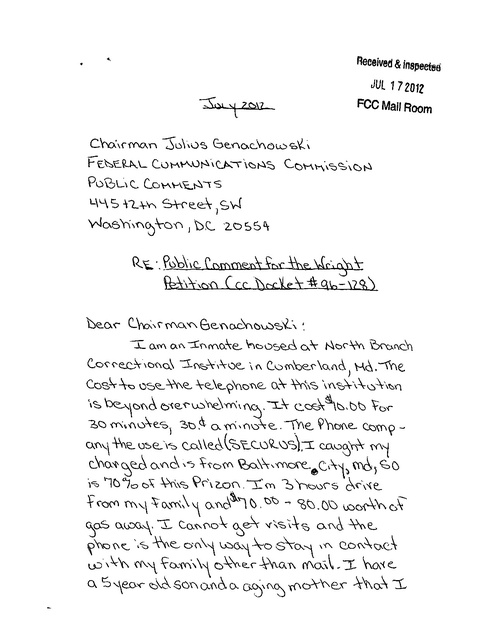 Received & Inspected
JUL 17 2012
FCC Mail Room
July 2012
Chairman Julius Genachowski
FEDERAL COMMUNICATIONS COMMISSION
PUBLIC COMMENTS
445 12th Street, SW
Washington, DC 20554
RE: Public Comment for the Wright
Petition (CC Docket #96-128)
Dear Chairman Genachowski:
I am an Inmate housed at North Branch
Correctional Institue in Cumberland, Md. The
Cost to use the telephone at this institution
is beyond overwhelming. It cost $10.00 For
30 minutes, 30.¢ a minute. The Phone comp-
any the use is called (SECURUS). I caught my
charged and is from Baltimore City, md, so
is 70% of this Prizon. I'm 3 hours drive
From my Family and $70.00 - 80.00 worth of
gas away. I cannot get visits and the
phone is the only way to stay in contact
with my family other than mail. I have
a 5 year old son and a aging mother that I